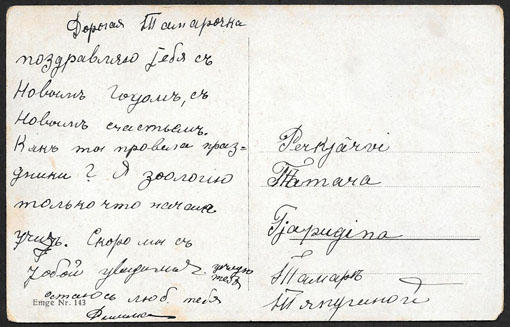 Дорогая Тамарочка
поздравляю Тебя съ
Новымъ Годомъ, съ
Новымъ счастьемъ.
Какъ ты провела праз-
дники? Я зоологию
только что начала
учить. Скоро мы съ
Тобой увидимся. целую
тебя
остаюсь люб. тебя
Emge Nr. 143
Perkjärvi
Tamara
Tjapugina
Тамаръ
Тяпугиной